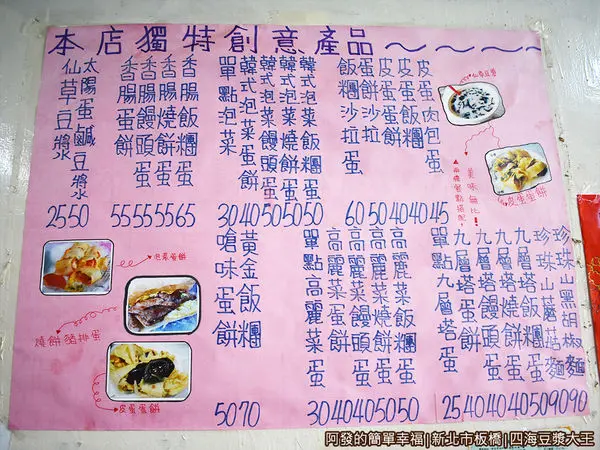 本店獨特創意產品～～～～
仙草豆漿
太陽蛋鹹豆漿
香腸蛋餅
香腸饅頭蛋
香腸燒餅蛋
香腸飯糰蛋
單點泡菜
韓式泡菜蛋餅
韓式泡菜饅頭蛋
韓式泡菜燒餅蛋
韓式泡菜飯糰蛋
飯糰沙拉蛋
蛋餅沙拉
皮蛋蛋餅
皮蛋肉包蛋
25 50 55 55 55 65 30 40 50 50 50 60 50 40 40 45
仙草豆漿
皮蛋蛋餅
美味無比!
泡菜蛋餅
燒餅豬排蛋
皮蛋蛋餅
嗆味蛋餅
黃金飯糰
單點高麗菜蛋
高麗菜蛋餅
高麗菜饅頭蛋
高麗菜燒餅蛋
高麗菜飯糰蛋
單點九層塔蛋
九層塔蛋餅
九層塔饅頭蛋
九層塔燒餅蛋
九層塔飯糰蛋
珍珠山蘑菇麵
珍珠山黑胡椒麵
50 70 30 40 40 50 50 25 40 40 40 50 90 90
阿發的簡單幸福|新北市板橋|四海豆漿大王